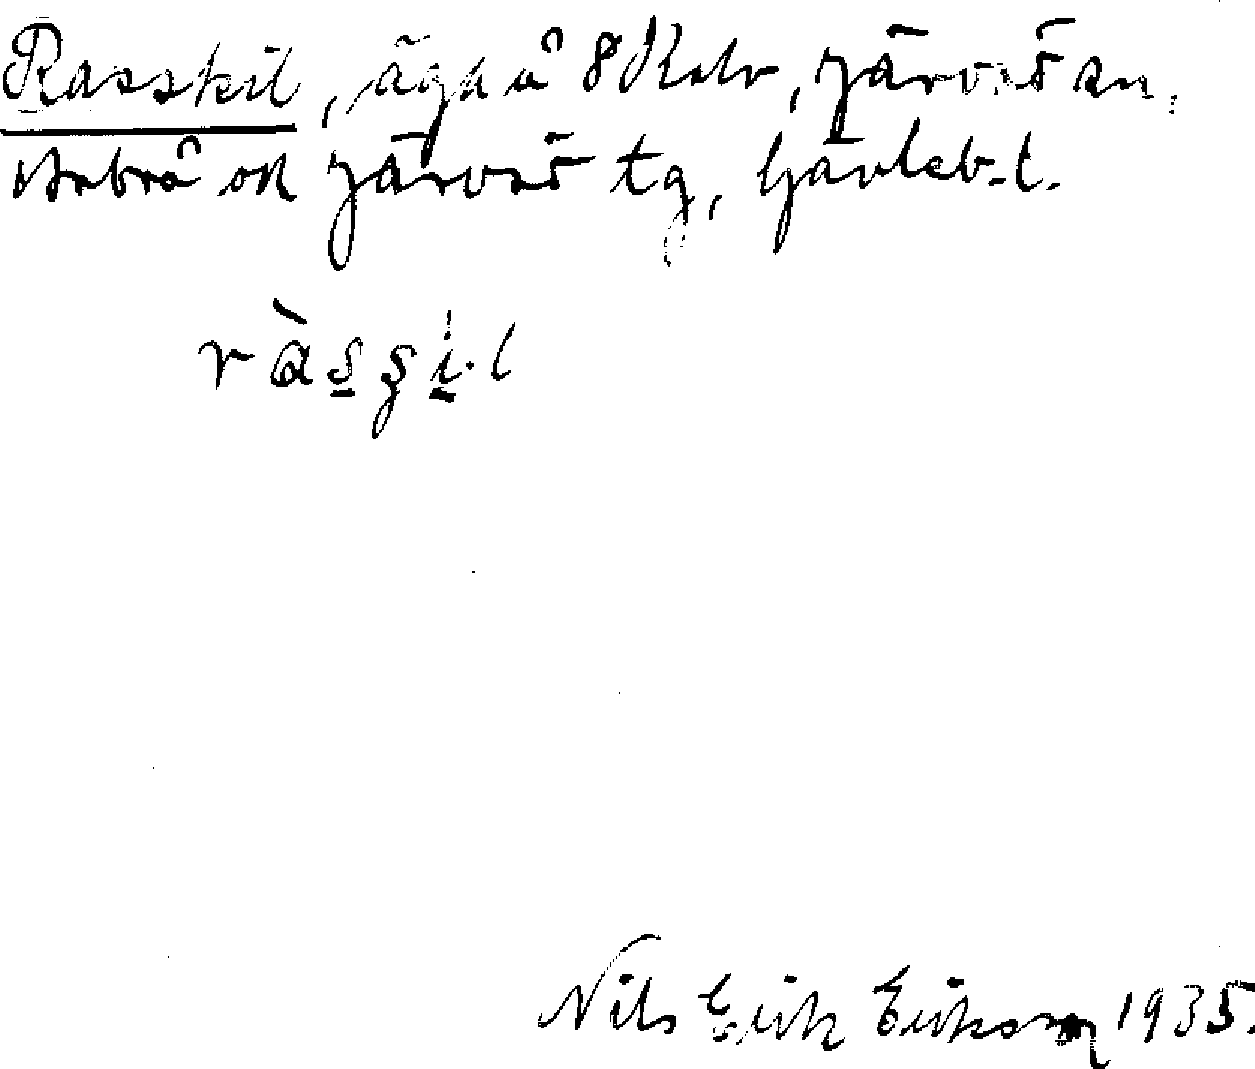 Rasskil, äga å 8 Kalv, Järvsö sn,
Arbrå och Järvsö tg, Gävleb. l.
ràsşi̱.l
Nils Erik Eriksson 1935.